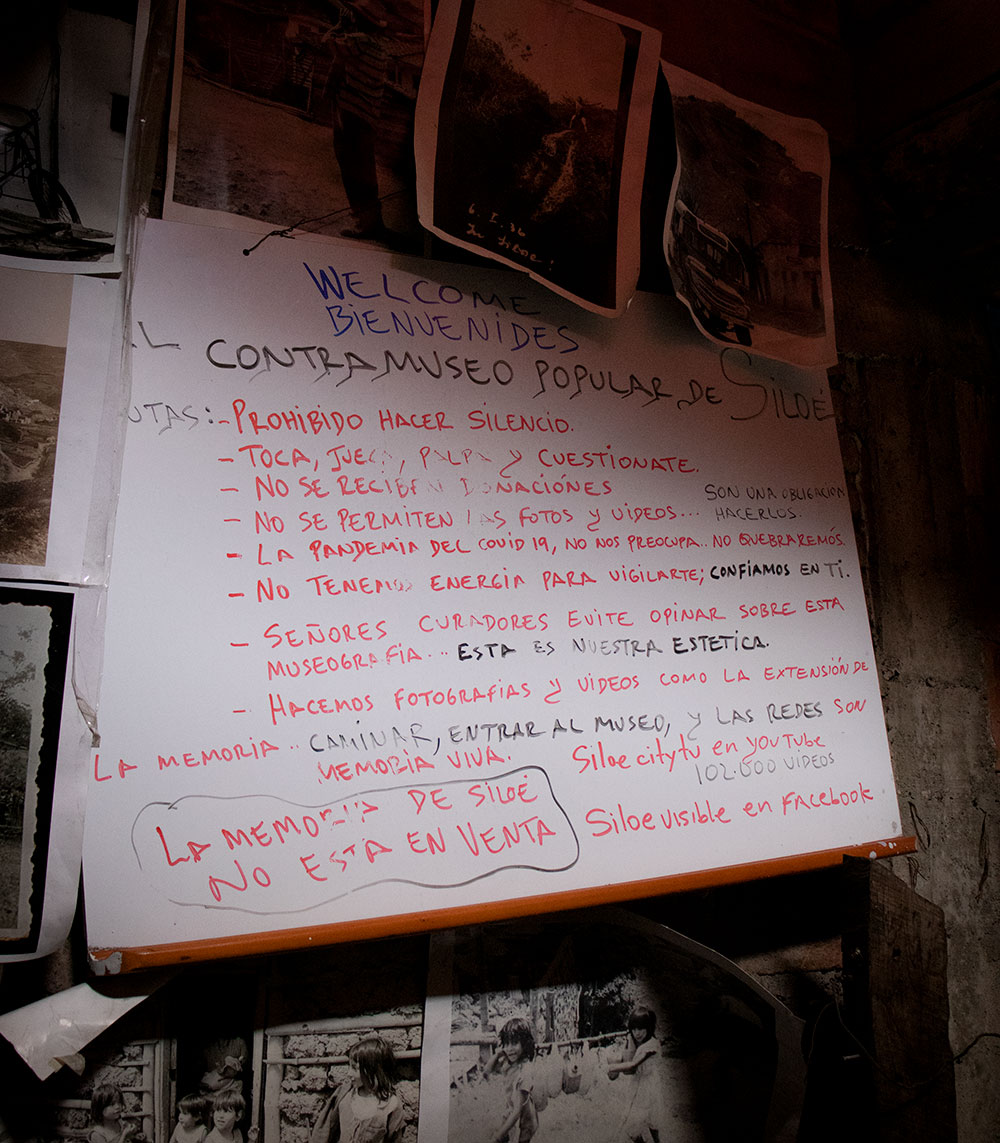 6.I.36
WELCOME
BIENVENIDES
AL
CONTRAMUSEO POPULAR DE SILOÉ
- PROHIBIDO HACER SILENCIO.
- TOCA, JUEGA, PALPA Y CUESTIONATE.
- NO SE RECIBEN DONACIÓNES
- NO SE PERMITEN LAS FOTOS Y VIDEOS... SON UNA OBLIGACION
HACERLOS.
- LA PANDEMIA DEL COVID 19, NO NOS PREOCUPA.. NO QUEBRAREMÓS.
- NO TENEMOS ENERGIA PARA VIGILARTE; CONFIAMOS EN TI.
- SEÑORES CURADORES EVITE OPINAR SOBRE ESTA
MUSEOGRAFIA... ESTA ES NUESTRA ESTETICA.
- HACEMOS FOTOGRAFIAS Y VIDEOS COMO LA EXTENSIÓN DE
LA MEMORIA.. CAMINAR, ENTRAR AL MUSEO, Y LAS REDES SON
MEMORIA VIVA.
Siloe citytv en YOUTUBE
102.000 VIDEOS
LA MEMORIA DE SILOÉ
NO ESTA EN VENTA
Siloe visible en FACEBOOK